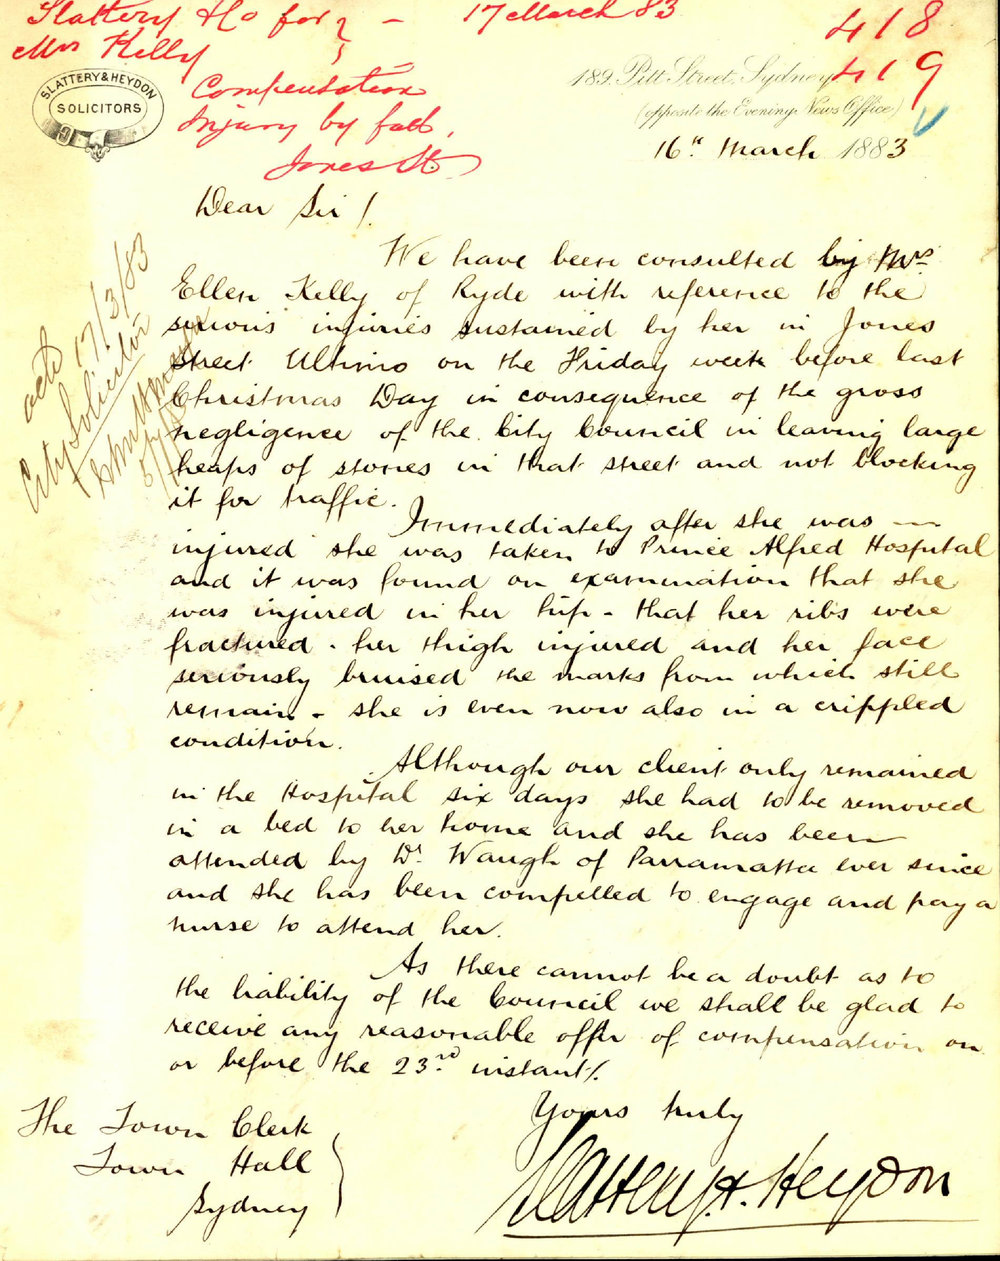 Slattery & Ho for — 17 March 83
Mrs Kelly
418
419
Compensation
Injury by fall.
Jones St
SLATTERY & HEYDON
SOLICITORS
189. Pitt Street, Sydney
(opposite the Evening News Office)
16th March 1883
Dear Sir /.
We have been consulted by Mrs
Ellen Kelly of Ryde with reference to the
serious injuries sustained by her in Jones
Street Ultimo on the Friday week before last
Christmas Day in consequence of the gross
negligence of the City Council in leaving large
heaps of stones in that street and not blocking
it for traffic.
Immediately after she was —
injured she was taken to Prince Alfred Hospital
and it was found on examination that she
was injured in her hip - that her ribs were
fractured - her thigh injured and her face
seriously bruised the marks from which still
remain - she is even now also in a crippled
condition.
Although our client only remained
in the Hospital six days she had to be removed
in a bed to her home and she has been
attended by Dr. Waugh of Parramatta ever since
and she has been compelled to engage and pay a
nurse to attend her.
As there cannot be a doubt as to
the liability of the Council we shall be glad to
receive any reasonable offer of compensation on
or before the 23rd instant/.
Yours truly
Slattery & Heydon
The Town Clerk
Town Hall
Sydney
17/3/83
City Solicitor